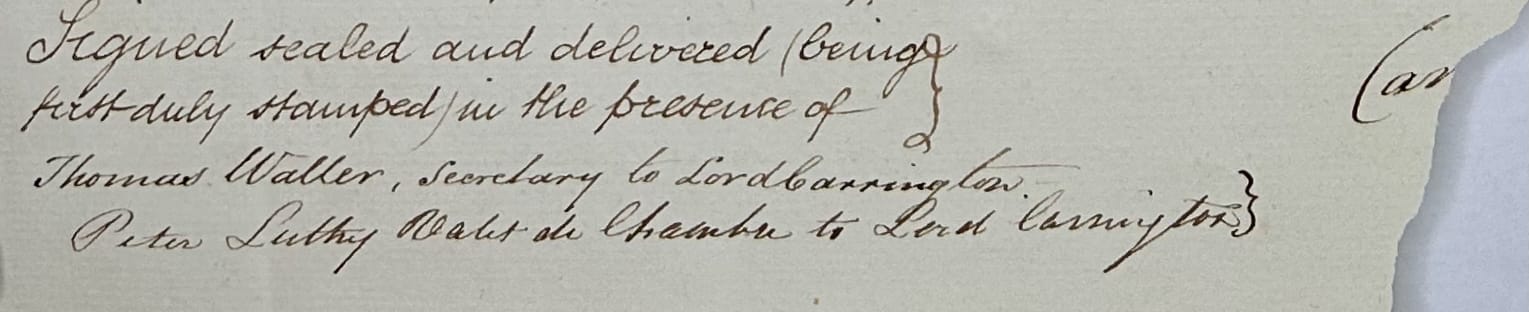 Signed sealed and delivered (being
first duly stamped) in the presence of
Thomas Waller, Secretary to Lord Carrington
Peter Luthy Valet de Chambre to Lord Carrington